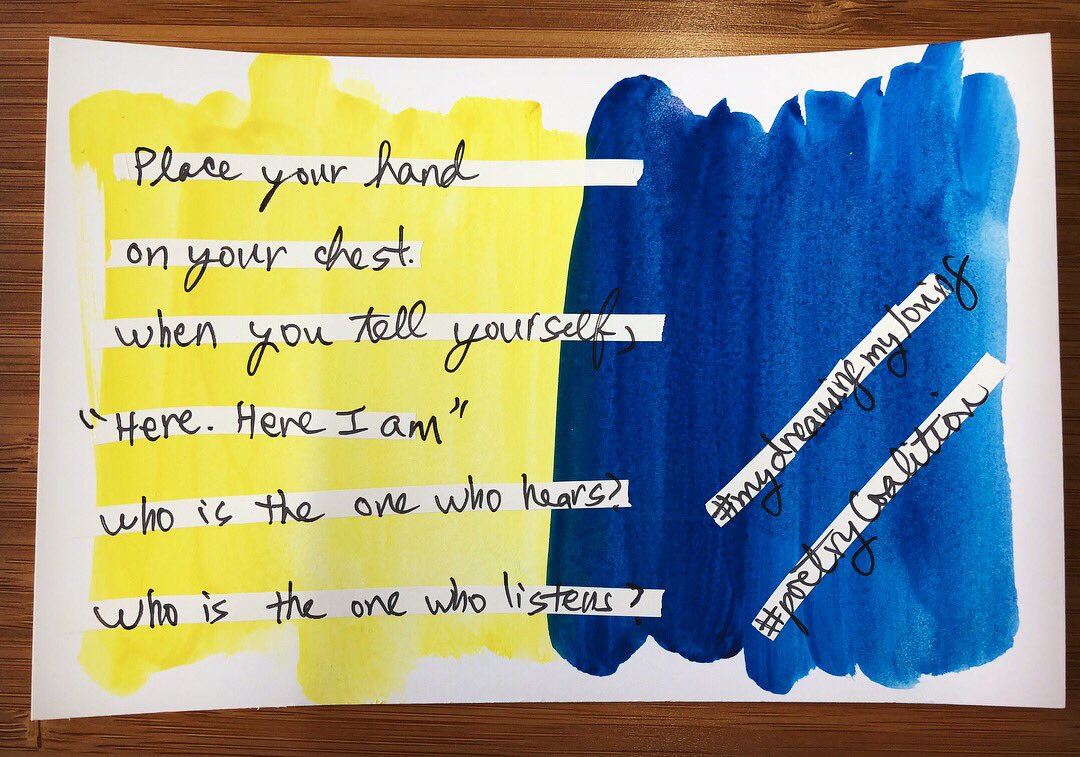 Place your hand
on your chest.
when you tell yourself,
"Here. Here I am"
who is the one who hears?
Who is the one who listens?
#mydreaming my loving
#poetryCoalition